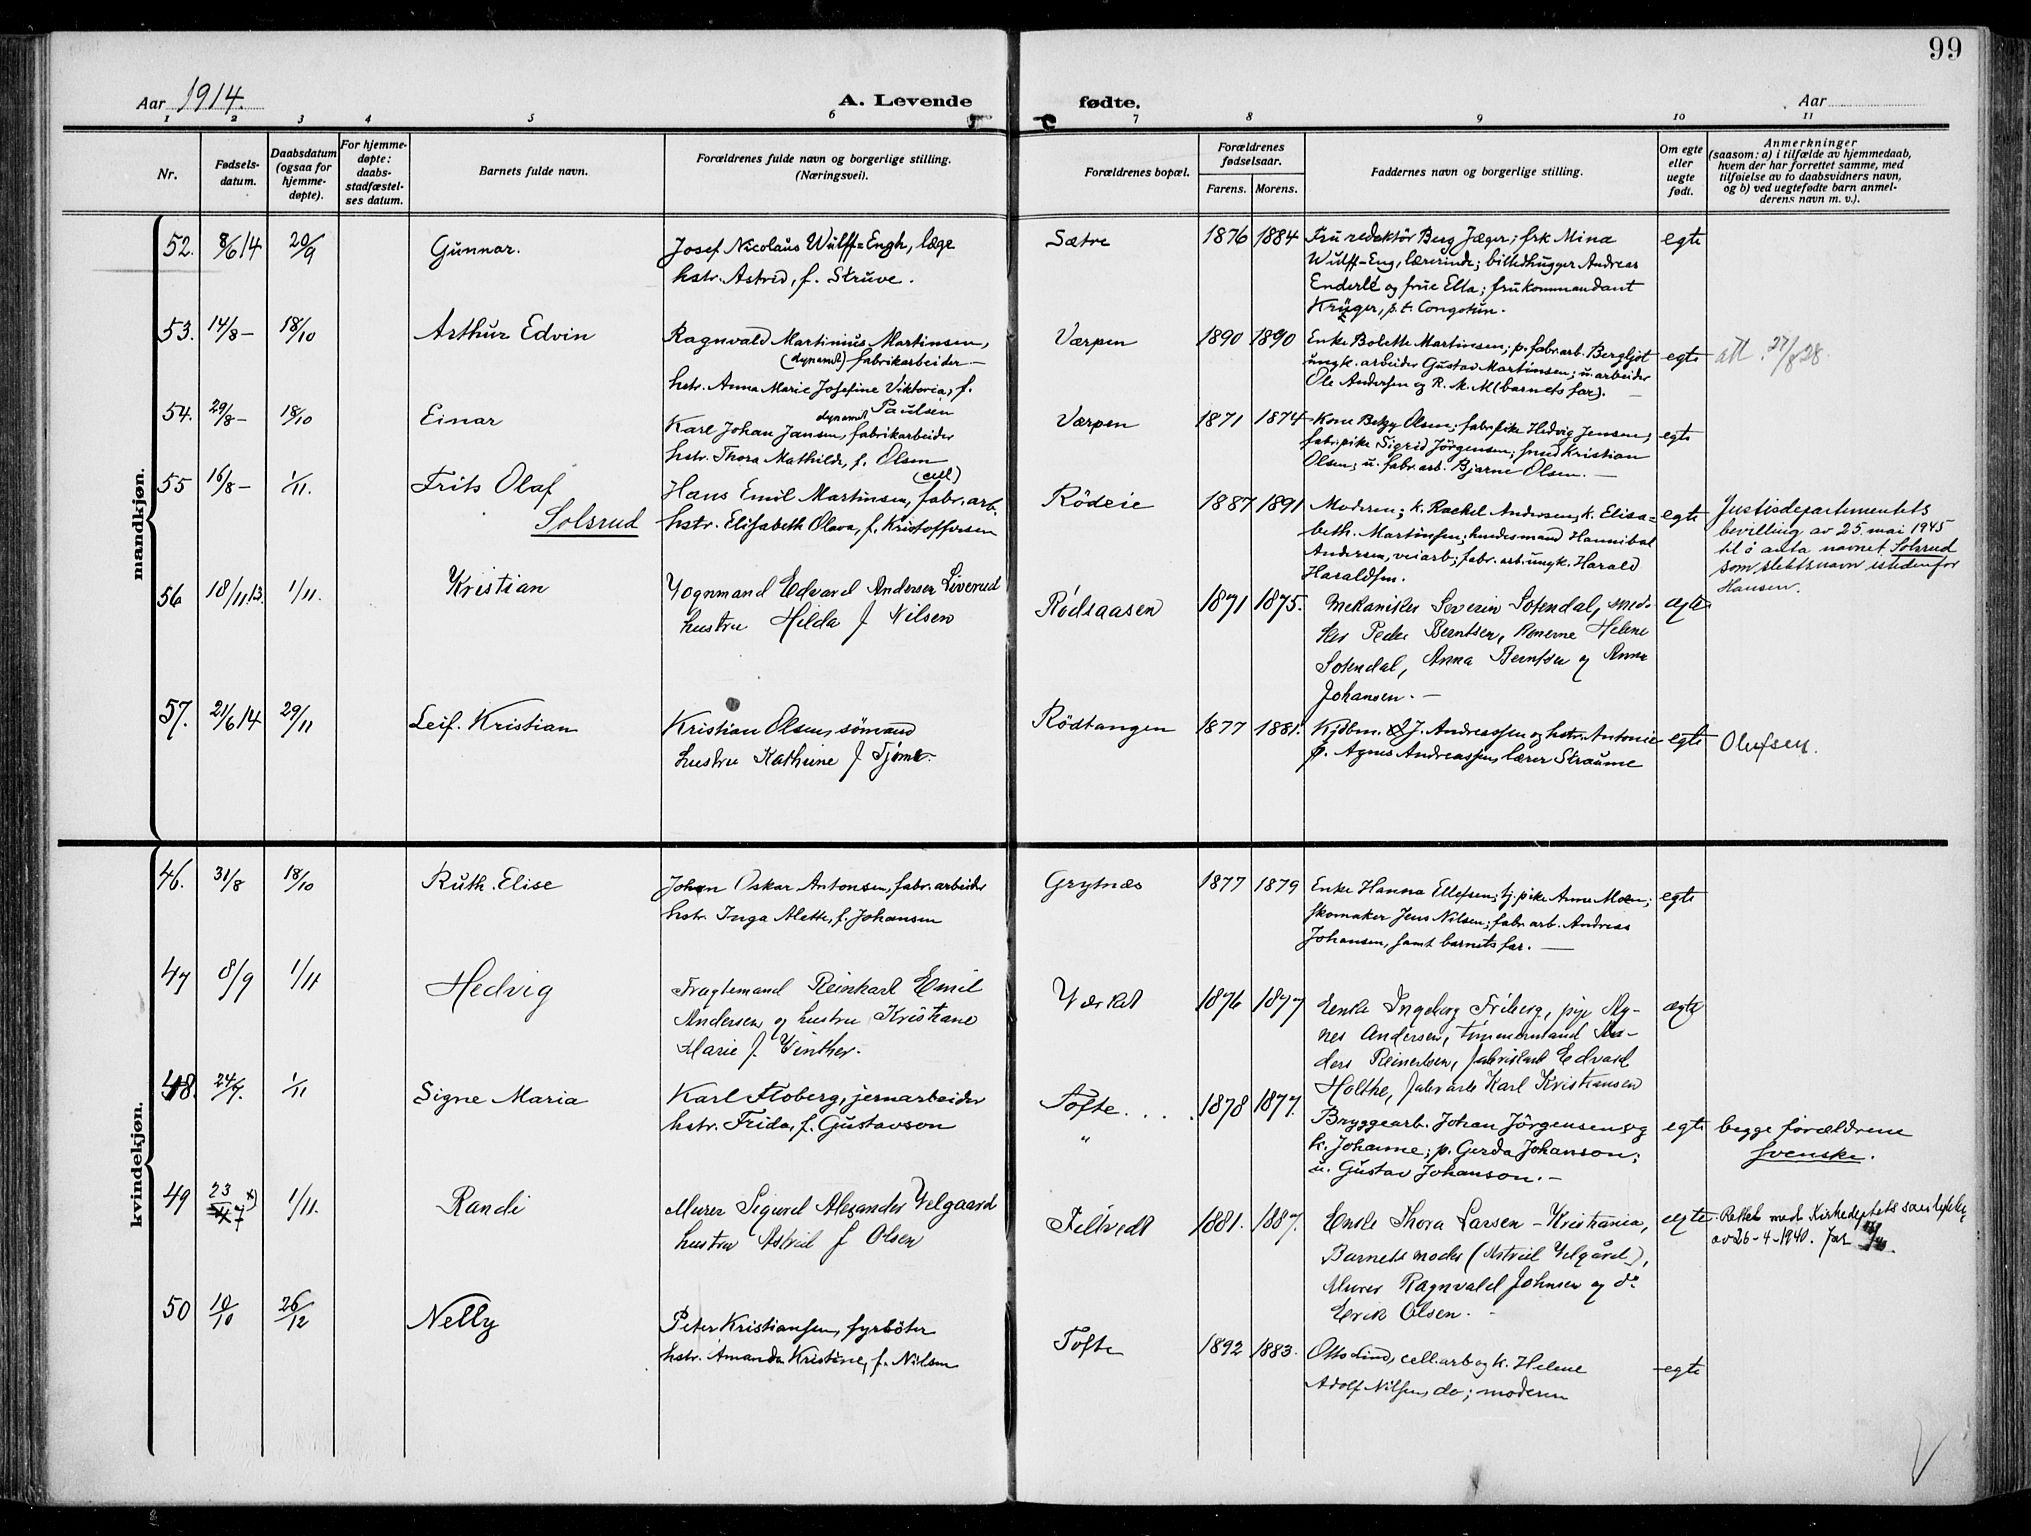 99
Aar 1914.
A. Levende fødte.
Aar
1 2 3 4 5 6 7 8 9 10 11
Nr.
Fødsels-
datum.
Daabsdatum
(ogsaa for
hjemme-
døpte).
For hjemme-
døpte:
daabs-
stadfæstel-
ses datum.
Barnets fulde navn.
Forældrenes fulde navn og borgerlige stilling.
(Næringsvei).
Forældrenes bopæl.
Forældrenes
fødselsaar.
Farens. Morens.
Faddernes navn og borgerlige stilling.
Om egte
eller
uegte
født.
Anmerkninger
(saasom: a) i tilfælde av hjemmedaab,
hvem der har forrettet samme, med
tilføielse av to daabsvidners navn,
og b) ved uegtefødte barn anmel-
derens navn m. v.).
mandkjøn.
52. 8/6 14 20/9 Gunnar.
Josef Nicolaus Wulff=Engh, læge
hstr. Astrid, f. Struve.
Sætre 1876 1884
Fru redaktör Berg Jæger; frk Mina
Wulff-Eng, lærerinde; billedhugger Andreas
Enderlé og frue Ella; fru kommandant
Krüger, p.t. Congotun.
egte
53. 14/8 – 18/10 Arthur Edvin
Ragnvald Martinius Martinsen,
(dynamit) fabrikarbeider –
hstr. Anna Marie Josefine Viktoria, f.
Paulsen
Værpen 1890 1890
Enke Bolette Martinsen; p. fabr.arb. Bergljot
ungk. arbeider Gustav Martinsen; u. arbeider
Ole Andersen og R. M. M (barnets far). –
egte
att. 27/8 28.
54. 29/8 – 18/10 Einar
dynamit
Karl Johan Jansen, fabrikarbeider
hstr. Thora Mathilde, f. Olsen
Værpen 1871 1874
Kone Betzy Olsen; fabr.pike Hedvig Jensen;
fabr.pike Sigrid Jörgensen; smed Kristian
Olsen; u. fabr.arb. Bjarne Olsen. –
egte
55 16/8 – 1/11. Frits Olaf
Solsrud
(cell)
Hans Emil Martinsen, fabr.arb.
hstr. Elisabeth Olava, f. Kristoffersen
Rödeie 1887 1891
Moderen; k. Rackel Andersen, k. Elisa-
beth. Martinsen; hundesmand Hannibal
Andersen, veiarb; fabr.arb. ungk. Harald
Haraldsen.
egte
Justisdepartementets
bevilling av 25. mai 1945
til å anta navnet Solsrud
som slektsnavn istedenfor
Hansen.
56 18/11 13. 1/11. Kristian
Vognmand Edvard Andersen Liverud
hustru Hilda f Nilsen
Rödsaasen 1871 1875.
Mekaniker Severin Solendal, sned-
ker Peder Berntsen, Konerne Helene
Solendal, Anna Berntsen og Anna
Johansen. –
egte
57. 21/6 14 29/11 Leif. Kristian
Kristian Olsen, sömand
hustru Kathrine f Tjöme.
Rödtangen 1877 1881.
Kjöbm. J. Andreassen og hstr. Antonie
p. Agnes Andreassen, lærer Straume
egte
Olufsen.
kvindekjøn.
46. 31/8 18/10 Ruth. Elise
Johan Oskar Antonsen, fabr. arbeider
hstr. Inga Alette, f. Johansen
Grytnæs 1877 1879
Enke Hanna Ellefsen; tj.pike Anne Moen;
skomaker Jens Nilsen; fabr.arb. Andreas
Johansen, samt barnets far. –
egte
47 8/9 1/11 Hedvig
Fragtemand Reinhart Emil
Andersen og hustru Kristiane
Marie f. Winther.
Værket 1876 1877
Enke Ingeborg Friberg, pige Ag-
nes Andersen, tømmermand An-
ders Reinertsen, fabrikarb Edvard
Holthe, fabrarb Karl Kristiansen
ægte
48. 24/7. 1/11 Signe Maria
Karl Floberg, jernarbeider
hstr. Frida, f. Gustavson
Tofte . . . 1878 1877.
"
Bryggearb. Johan Jörgensen og
k. Johanne; p. Gerda Johanson;
u. Gustav Johanson. –
egte
begge forældrene
svenske.
49 23/7 x) 1/11. Randi
Murer Sigurd Alexander Velgaard
hustru Astrid f Olsen
Filtvedt 1881. 1887.
Enke Thora Larsen – Kristiania,
Barnets moder (Astrid Velgård),
Murer Ragnvald Johnsen og do
Erik Olsen. –
egte
Rettet med Kirkedeptets samtykke
av 26-4-1940.
50 10/10 26/12 Nelly
Peter Kristiansen, fyrböter
hstr. Amanda Kristine, f. Nilsen
Tofte 1892 1883.
Otto Lind, cell.arb og k. Helene
Adolf Nilsen, do; moderen
egte